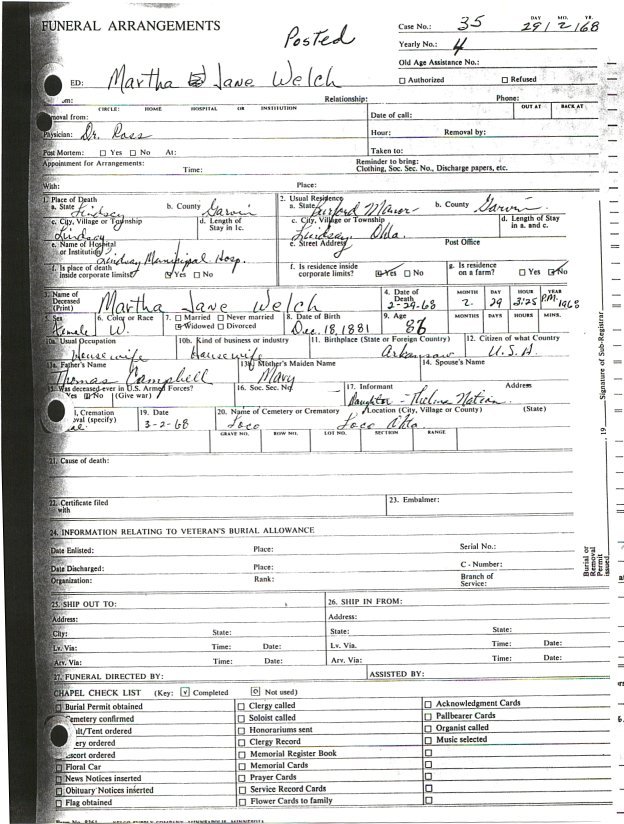 FUNERAL ARRANGEMENTS
Posted
Case No.: 35
DAY MO. YR.
29/2/68
Yearly No.: 4
Old Age Assistance No.:
☐ Authorized ☐ Refused
ED: Martha Jane Welch
Relationship: Phone:
CIRCLE: HOME HOSPITAL OR INSTITUTION
OUT AT BACK AT
moval from: Date of call:
Physician: Dr. Ross Hour: Removal by:
Post Mortem: ☐ Yes ☐ No At: Taken to:
Appointment for Arrangements: Time:
Reminder to bring:
Clothing, Soc. Sec. No., Discharge papers, etc.
With: Place:
1. Place of Death
a. State Lindsey b. County Garvin
c. City, Village or Township d. Length of Stay in 1c.
Lindsay
e. Name of Hospital or Institution Lindsay Municipal Hosp.
f. Is place of death inside corporate limits? ☑ Yes ☐ No
2. Usual Residence
a. State Manor b. County Garvin
c. City, Village or Township d. Length of Stay in a. and c.
Lindsay Okla.
e. Street Address Post Office
f. Is residence inside corporate limits? ☑ Yes ☐ No
g. Is residence on a farm? ☐ Yes ☑ No
3. Name of Deceased (Print) Martha Jane Welch
4. Date of Death 2-29-68
MONTH DAY HOUR YEAR
2 29 3:25 P.M. 1968
5. Sex Female
6. Color or Race W.
7. ☐ Married ☐ Never married
☑ Widowed ☐ Divorced
8. Date of Birth Dec. 18, 1881
9. Age 86
MONTHS DAYS HOURS MINS.
10a. Usual Occupation Housewife
10b. Kind of business or industry Housewife
11. Birthplace (State or Foreign Country) Arkansas
12. Citizen of what Country U.S.A.
13a. Father's Name Thomas Campbell
13b. Mother's Maiden Name Mary
14. Spouse's Name
15. Was deceased ever in U.S. Armed Forces?
Yes ☑ No (Give war)
16. Soc. Sec. No.
17. Informant Address
Daughter - Thelma Nation
l, Cremation
val (specify)
19. Date 3-2-68
20. Name of Cemetery or Crematory Loco
Location (City, Village or County) (State)
Loco Okla.
GRAVE NO. ROW NO. LOT NO. SECTION RANGE
21. Cause of death:
22. Certificate filed with
23. Embalmer:
24. INFORMATION RELATING TO VETERAN'S BURIAL ALLOWANCE
Date Enlisted: Place: Serial No.:
Date Discharged: Place: C - Number:
Organization: Rank: Branch of Service:
25. SHIP OUT TO:
Address:
City: State:
Lv. Via: Time: Date:
Arv. Via: Time: Date:
26. SHIP IN FROM:
Address:
State: State:
Lv. Via. Time: Date:
Arv. Via: Time: Date:
27. FUNERAL DIRECTED BY: ASSISTED BY:
CHAPEL CHECK LIST (Key: ☑ Completed ☐ Not used)
☐ Burial Permit obtained
emetery confirmed
ult/Tent ordered
ery ordered
Escort ordered
☐ Floral Car
☐ News Notices inserted
☐ Obituary Notices inserted
☐ Flag obtained
☐ Clergy called
☐ Soloist called
☐ Honorariums sent
☐ Clergy Record
☐ Memorial Register Book
☐ Memorial Cards
☐ Prayer Cards
☐ Service Record Cards
☐ Flower Cards to family
☐ Acknowledgment Cards
☐ Pallbearer Cards
☐ Organist called
☐ Music selected
Burial or Removal Permit issued
19
Signature of Sub-Registrar